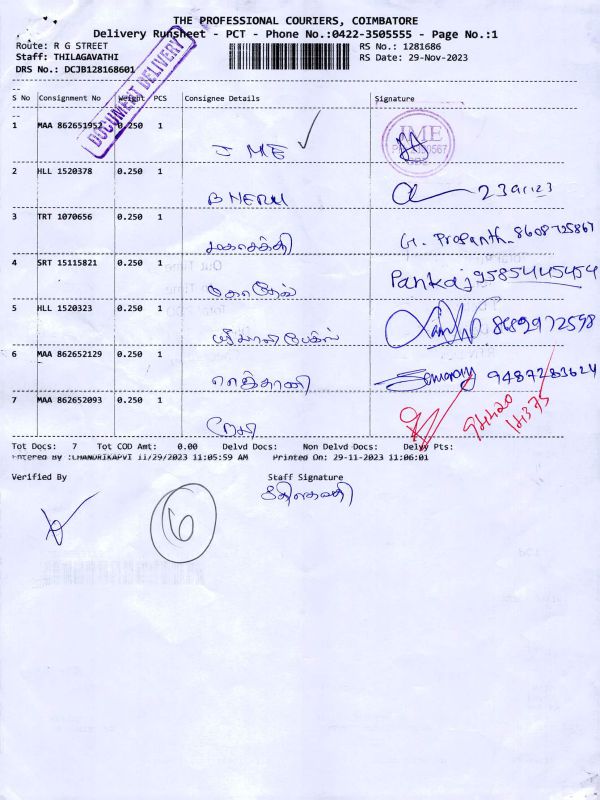 THE PROFESSIONAL COURIERS, COIMBATORE
Delivery Runsheet - PCT - Phone No.:0422-3505555 - Page No.:1
Route: R G STREET RS No.: 1281686
Staff: THILAGAVATHI RS Date: 29-Nov-2023
DRS No.: DCJB128168601
DOCUMENT DELIVERY
S No Consignment No Weight PCS Consignee Details Signature
1 MAA 862651952 0.250 1
J ME
JME
2 HLL 1520378 0.250 1
B NERU
3 TRT 1070656 0.250 1
G. Prasanth 8608725867
4 SRT 15115821 0.250 1
Pankaj 9585445454
5 HLL 1520323 0.250 1
8682972598
6 MAA 862652129 0.250 1
9487283624
7 MAA 862652093 0.250 1
94420
14375
Tot Docs: 7 Tot COD Amt: 0.00 Delvd Docs: Non Delvd Docs: Delvy Pts:
Entered By :CHANDRIKAPVI 11/29/2023 11:05:59 AM Printed On: 29-11-2023 11:06:01
Verified By Staff Signature
6